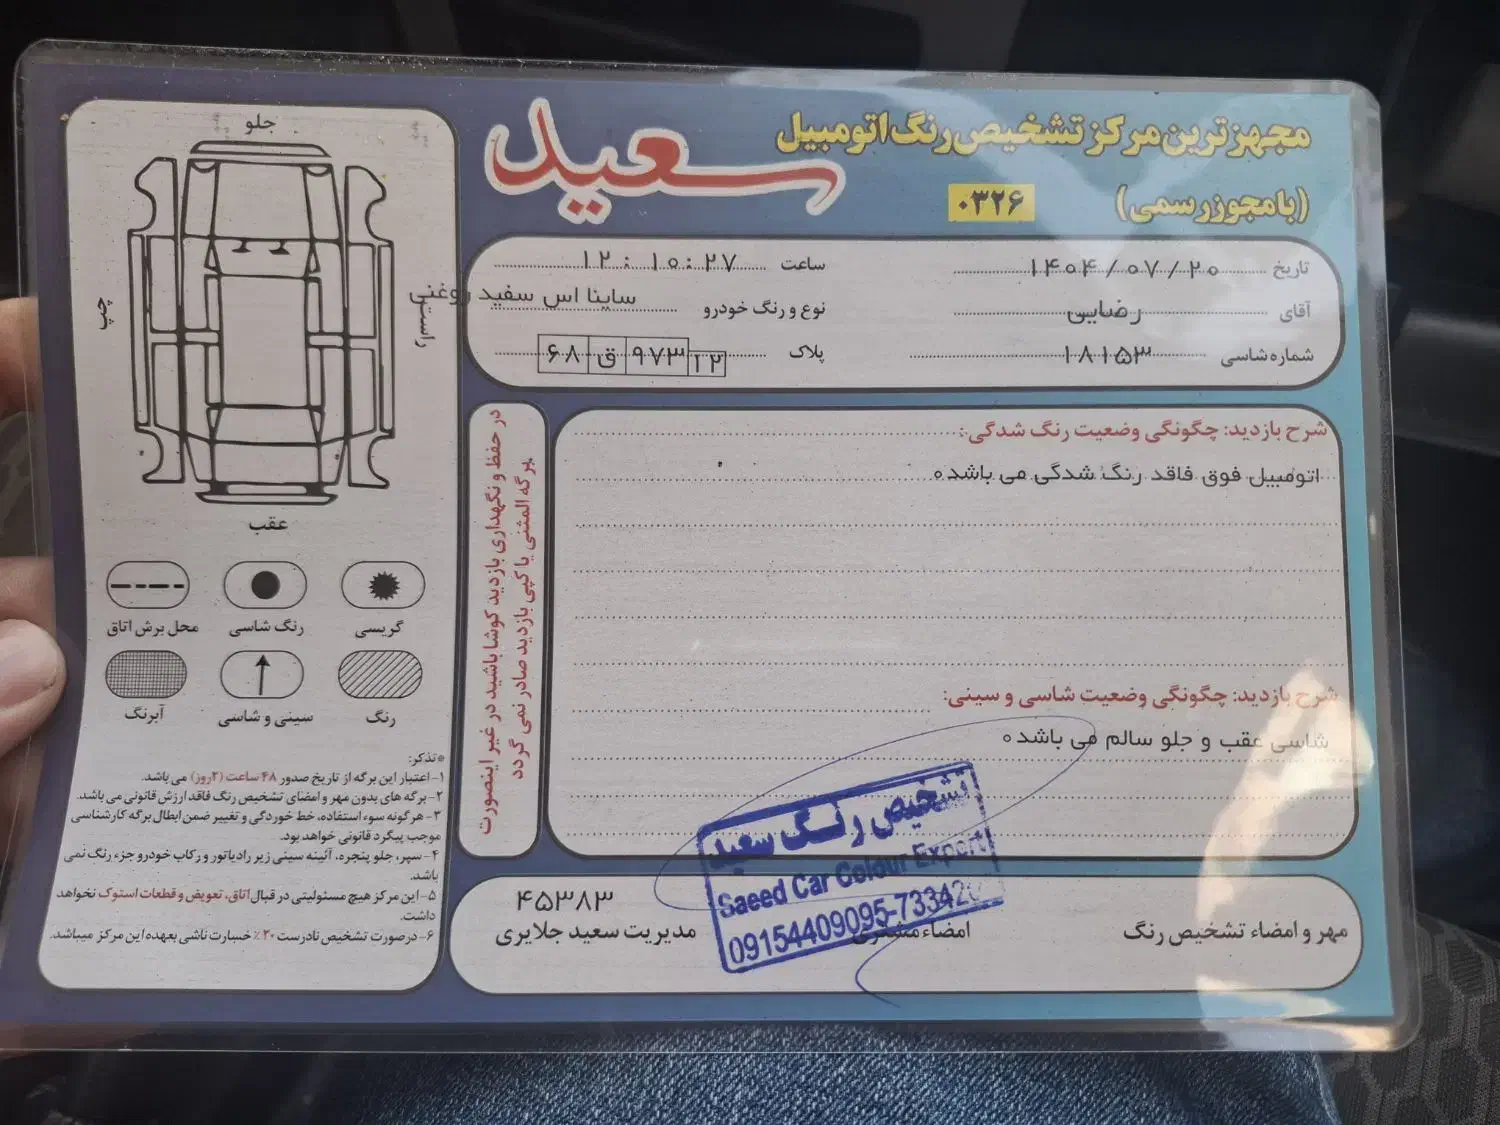 مجهزترین مرکز تشخیص رنگ اتومبیل
سعید
(بامجوز رسمی)
۰۳۲۶
تاریخ ۱۴۰۴/۰۷/۲۰
ساعت ۱۲:۱۰:۲۷
آقای رضایی
نوع و رنگ خودرو ساینا اس سفید روغنی
شماره شاسی ۱۸۱۵۳
پلاک ۶۸ ق ۹۷۳ ۱۲
شرح بازدید: چگونگی وضعیت رنگ شدگی:
اتومبیل فوق فاقد رنگ شدگی می باشد۰
شرح بازدید: چگونگی وضعیت شاسی و سینی:
شاسی عقب و جلو سالم می باشد۰
تشخیص رنگ سعید
Saeed Car Colour Expert
09154409095-733420
مهر و امضاء تشخیص رنگ
امضاء مشتری
۴۵۳۸۳
مدیریت سعید جلایری
در حفظ و نگهداری بازدید کوشا باشید در غیر اینصورت
برگه المثنی یا کپی بازدید صادر نمی گردد
جلو
چپ
راست
عقب
گریسی
رنگ شاسی
محل برش اتاق
رنگ
سینی و شاسی
آبرنگ
*تذکر:
۱- اعتبار این برگه از تاریخ صدور ۴۸ ساعت (۲روز) می باشد.
۲- برگه های بدون مهر و امضای تشخیص رنگ فاقد ارزش قانونی می باشد.
۳- هرگونه سوء استفاده، خط خوردگی و تغییر ضمن ابطال برگه کارشناسی
موجب پیگرد قانونی خواهد بود.
۴- سپر، جلو پنجره، آئینه سینی زیر رادیاتور و رکاب خودرو جزء رنگ نمی
باشد.
۵- این مرکز هیچ مسئولیتی در قبال اتاق، تعویض و قطعات استوک نخواهد
داشت.
۶- در صورت تشخیص نادرست ۲۰٪ خسارت ناشی بعهده این مرکز میباشد.